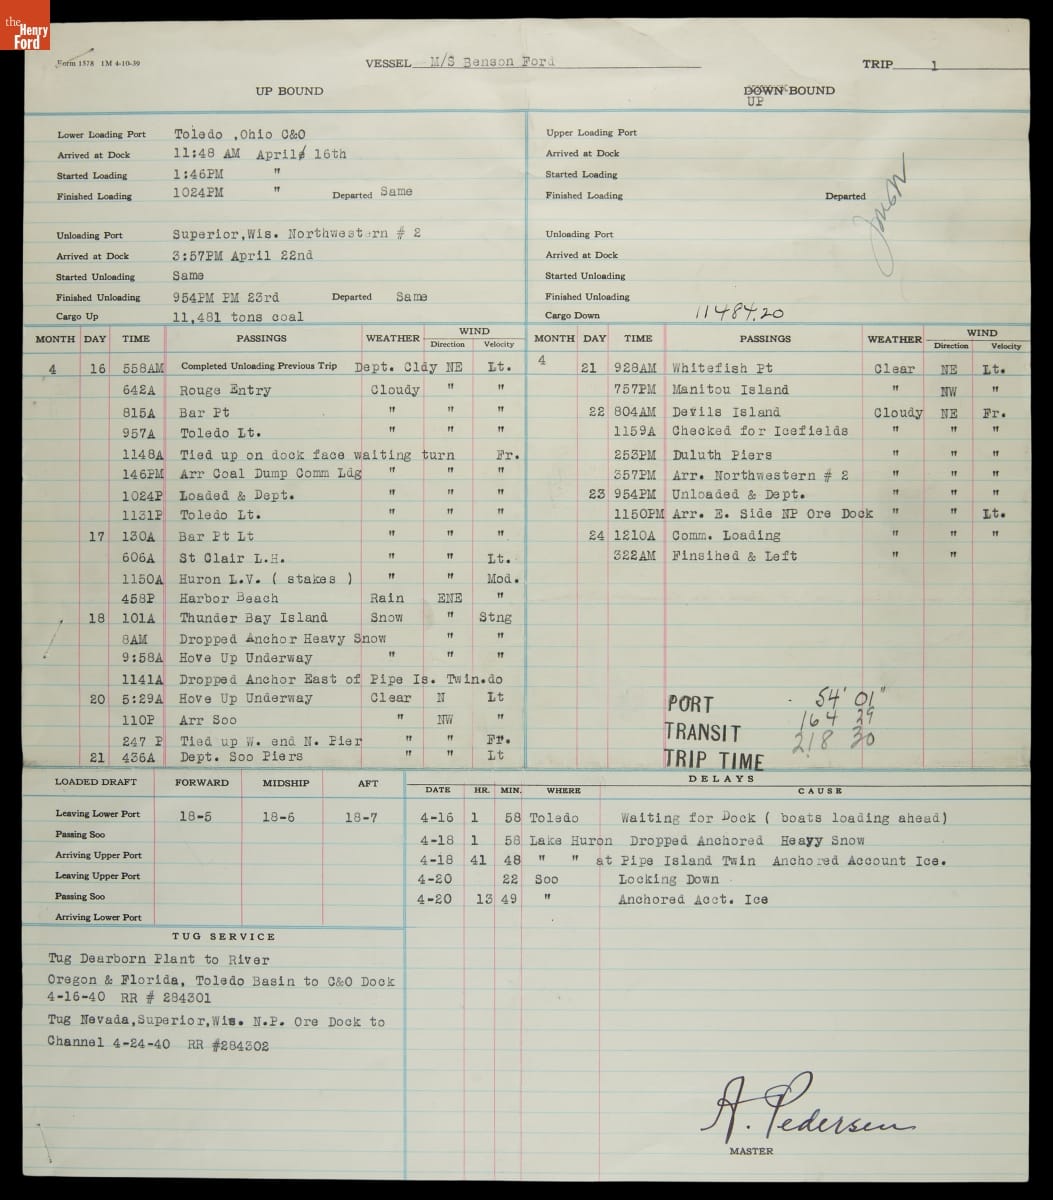 the
Henry
Ford
Form 1578 1M 4-10-39
VESSEL M/S Benson Ford
TRIP 1
UP BOUND
DOWN BOUND
UP
Lower Loading Port Toledo ,Ohio C&O
Arrived at Dock 11:48 AM April 16th
Started Loading 1:46PM "
Finished Loading 1024PM " Departed Same
Unloading Port Superior,Wis. Northwestern # 2
Arrived at Dock 3:57PM April 22nd
Started Unloading Same
Finished Unloading 954PM PM 23rd Departed Same
Cargo Up 11,481 tons coal
Upper Loading Port
Arrived at Dock
Started Loading
Finished Loading Departed
Unloading Port
Arrived at Dock
Started Unloading
Finished Unloading
Cargo Down 11484.20
MONTH DAY TIME PASSINGS WEATHER WIND Direction Velocity
4 16 558AM Completed Unloading Previous Trip Dept. Cldy NE Lt.
642A Rouge Entry Cloudy " "
815A Bar Pt " " "
957A Toledo Lt. " " "
1148A Tied up on dock face waiting turn Fr.
146PM Arr Coal Dump Comm Ldg " " "
1024P Loaded & Dept. " " "
1131P Toledo Lt. " " "
17 130A Bar Pt Lt " " "
606A St Clair L.H. " " Lt.
1150A Huron L.V. ( stakes ) " " Mod.
458P Harbor Beach Rain ENE "
18 101A Thunder Bay Island Snow " Stng
8AM Dropped Anchor Heavy Snow " "
9:58A Hove Up Underway " " "
1141A Dropped Anchor East of Pipe Is. Twin.do
20 5:29A Hove Up Underway Clear N Lt
110P Arr Soo " NW "
247 P Tied up W. end N. Pier " " Fr.
21 436A Dept. Soo Piers " " Lt
MONTH DAY TIME PASSINGS WEATHER WIND Direction Velocity
4 21 928AM Whitefish Pt Clear NE Lt.
757PM Manitou Island " NW "
22 804AM Devils Island Cloudy NE Fr.
1159A Checked for Icefields " " "
253PM Duluth Piers " " "
357PM Arr. Northwestern # 2 " " "
23 954PM Unloaded & Dept. " " "
1150PM Arr. E. Side NP Ore Dock " " Lt.
24 1210A Comm. Loading " " "
322AM Finsihed & Left " "
PORT 54' 01"
TRANSIT 164 29
TRIP TIME 218 30
LOADED DRAFT FORWARD MIDSHIP AFT
Leaving Lower Port 18-5 18-6 18-7
Passing Soo
Arriving Upper Port
Leaving Upper Port
Passing Soo
Arriving Lower Port
DELAYS
DATE HR. MIN. WHERE CAUSE
4-16 1 58 Toledo Waiting for Dock ( boats loading ahead)
4-18 1 58 Lake Huron Dropped Anchored Heavy Snow
4-18 41 48 " " at Pipe Island Twin Anchored Account Ice.
4-20 22 Soo Locking Down
4-20 13 49 " Anchored Acct. Ice
TUG SERVICE
Tug Dearborn Plant to River
Oregon & Florida, Toledo Basin to C&O Dock
4-16-40 RR # 284301
Tug Nevada,Superior,Wis. N.P. Ore Dock to
Channel 4-24-40 RR #284302
A. Pedersen
MASTER